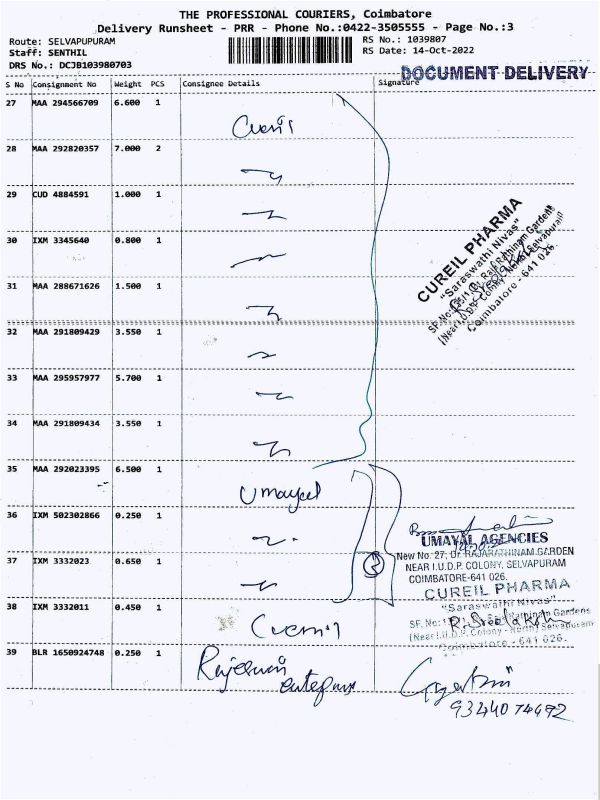 THE PROFESSIONAL COURIERS, Coimbatore
Delivery Runsheet - PRR - Phone No.:0422-3505555 - Page No.:3
Route: SELVAPUPURAM
RS No.: 1039807
Staff: SENTHIL
RS Date: 14-Oct-2022
DRS No.: DCJB103980703
DOCUMENT DELIVERY
S No Consignment No Weight PCS Consignee Details Signature
27 MAA 294566709 6.600 1
28 MAA 292820357 7.000 2
29 CUD 4884591 1.000 1
30 IXM 3345640 0.800 1
31 MAA 288671626 1.500 1
CUREIL PHARMA
"Saraswathi Nivas"
Coimbatore - 641 026.
32 MAA 291809429 3.550 1
33 MAA 295957977 5.700 1
34 MAA 291809434 3.550 1
35 MAA 292023395 6.500 1
Umayal
36 IXM 502302866 0.250 1
UMAYAL AGENCIES
New No. 27, Dr. RAJARATHINAM GARDEN
NEAR I.U.D.P. COLONY, SELVAPURAM
COIMBATORE-641 026.
37 IXM 3332023 0.650 1
2
CUREIL PHARMA
"Saraswathi Nivas"
38 IXM 3332011 0.450 1
(Near I.U.D.P. Colony - North) Selvapuram
Coimbatore - 641 026.
39 BLR 1650924748 0.250 1